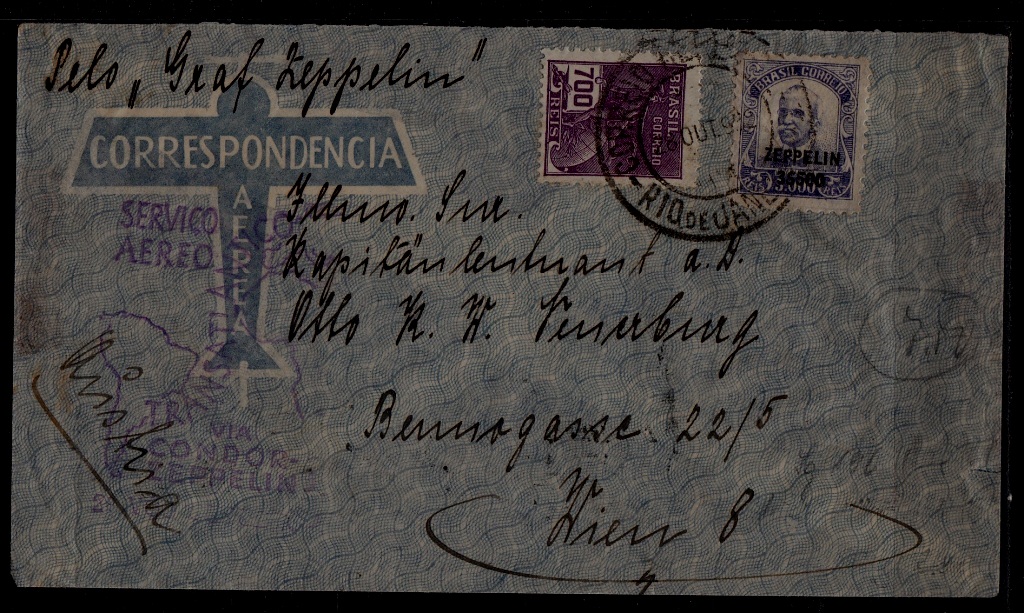 Pelo „Graf Zeppelin"
CORRESPONDENCIA
AEREA
700
REIS
BRASIL
CORREIO
OUT
RIO DE JANE
BRASIL CORREIO
ZEPPELIN
3$500
SERVIÇO
AEREO
TRANS
VIA
CONDOR-
ZEPPELIN
Illmo. Snr.
Kapitänleutnant a. D.
Otto K. W.
Bennogasse 22/5
Wien 8
Austria